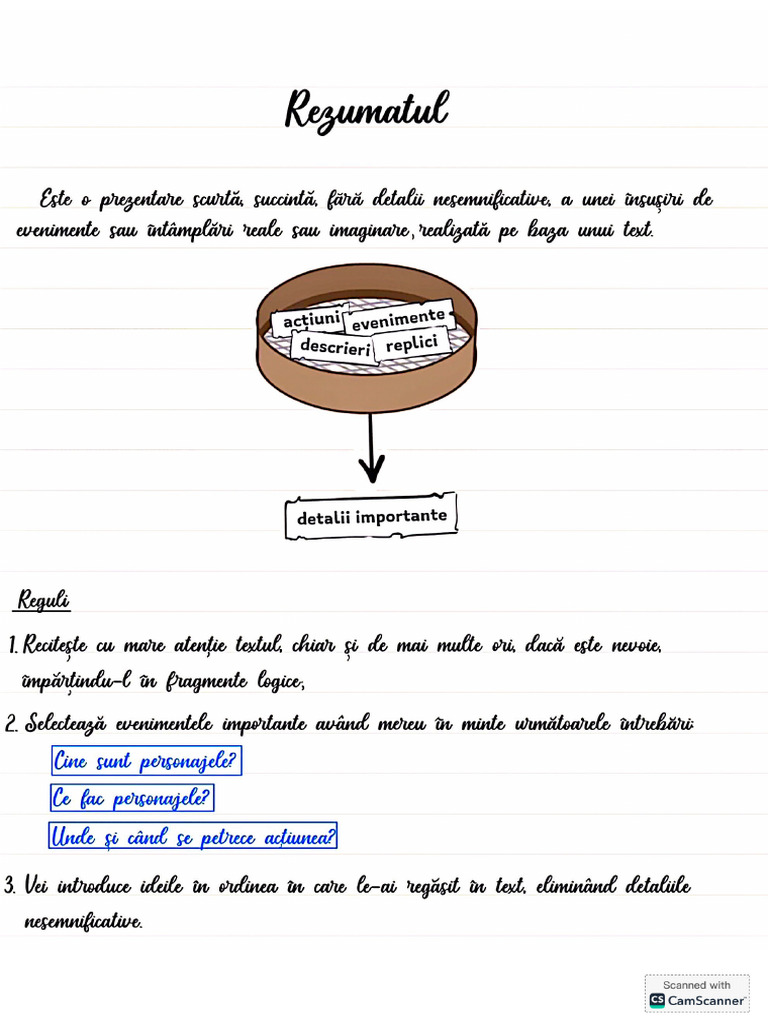 Rezumatul
Este o prezentare scurtă, succintă, fără detalii nesemnificative, a unei însușiri de
evenimente sau întâmplări reale sau imaginare, realizată pe baza unui text.
acțiuni
evenimente
descrieri
replici
detalii importante
Reguli
1. Recitește cu mare atenție textul, chiar și de mai multe ori, dacă este nevoie,
împărțindu-l în fragmente logice;
2. Selectează evenimentele importante având mereu în minte următoarele întrebări:
Cine sunt personajele?
Ce fac personajele?
Unde și când se petrece acțiunea?
3. Vei introduce ideile în ordinea în care le-ai regăsit în text, eliminând detaliile
nesemnificative.
Scanned with
CS CamScanner